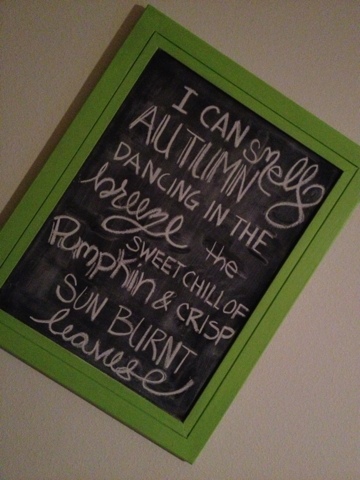 I CAN smell
AUTUMN
DANCING IN THE
breeze the
SWEET CHILL OF
PumpKin & CRISP
SUN BURNT
leaves